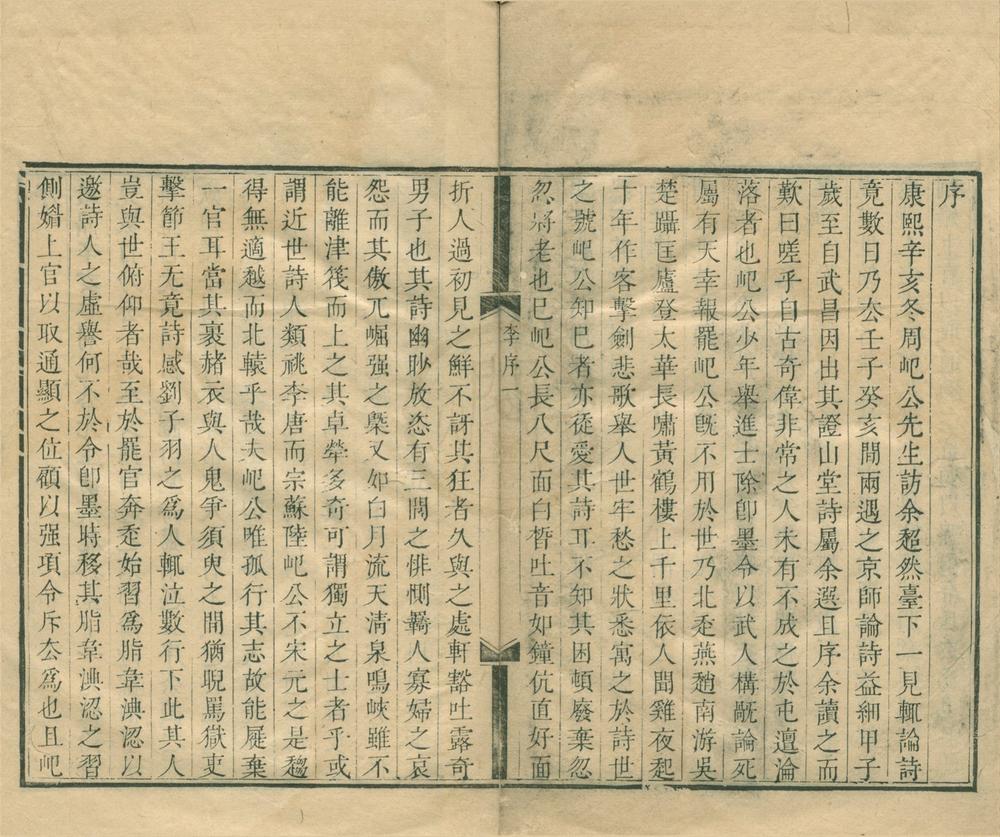 序
康熙辛亥冬周屺公先生訪余超然臺下一見輒論詩
竟數日乃去壬子癸亥閒兩遇之京師論詩益細甲子
歲至自武昌因出其證山堂詩屬余選且序余讀之而
歎曰嗟乎自古奇偉非常之人未有不成之於屯邅淪
落者也屺公少年舉進士除卽墨令以武人構厰論死
屬有天幸報罷屺公旣不用於世乃北走燕趙南游吳
楚躡匡廬登太華長嘯黃鶴樓上千里依人聞雞夜起
十年作客擊劍悲歌舉人世牢愁之狀悉寓之於詩世
之號屺公知巳者亦從愛其詩耳不知其困頓廢棄忽
忽將老也巳屺公長八尺面白晳吐音如鐘伉直好面
李序
一
折人過初見之鮮不訝其狂者久與之處軒豁吐露奇
男子也其詩幽眇放恣有三閭之悱惻羇人寡婦之哀
怨而其傲兀崛强之槩又如白月流天淸泉鳴峽雖不
能離津筏而上之其卓犖多奇可謂獨立之士者乎或
謂近世詩人類祧李唐而宗蘇陸屺公不宋元之是趨
得無適越而北轅乎哉夫屺公唯孤行其志故能屣棄
一官耳當其裹赭衣與人鬼爭須臾之閒猶睨罵獄吏
擊節王无竟詩感劉子羽之爲人輒泣數行下此其人
豈與世俯仰者哉至於罷官奔走始習爲脂韋淟涊以
邀詩人之虛譽何不於令卽墨時移其脂韋淟涊之習
側媚上官以取通顯之位顧以强項令斥去爲也且屺